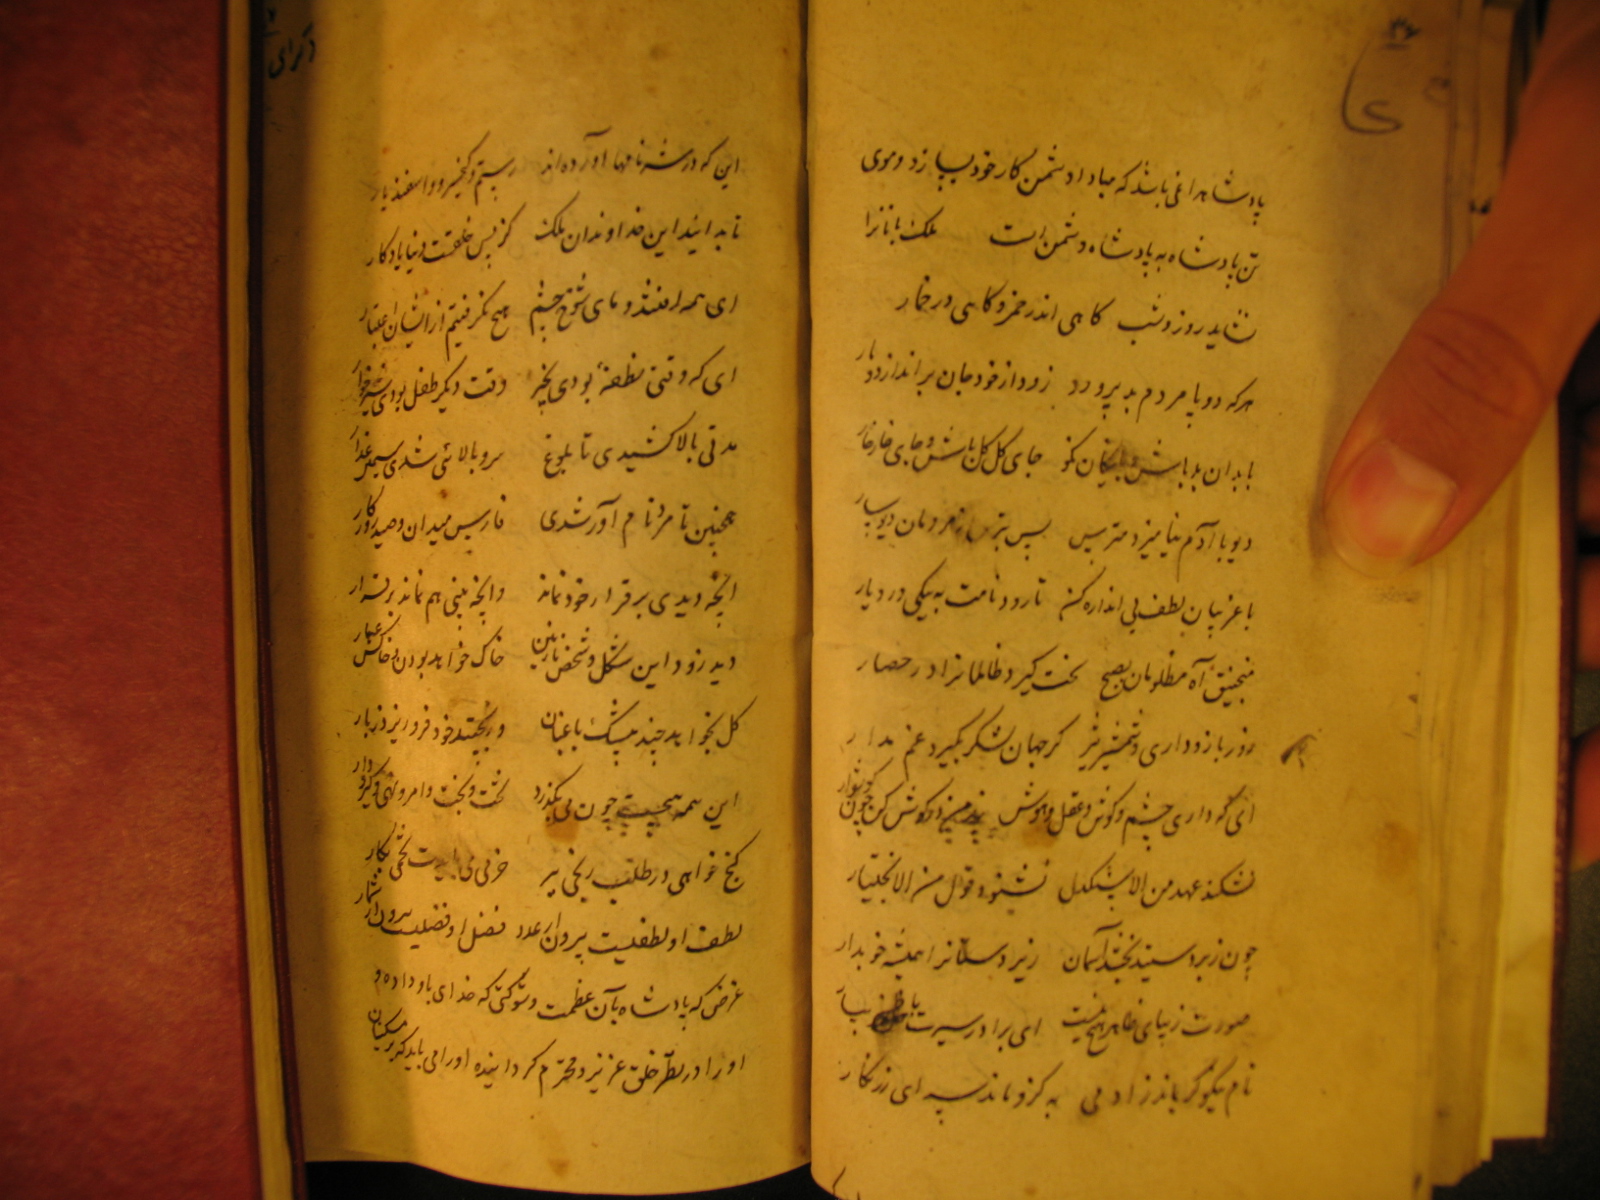 پادشاهرا غمی باشد که مبادا دشمن کار خود بسازد و موی
تن پادشاه به پادشاه دشمن است ملک بانانرا
نشاید روز و شب گاهی اندر خمر و گاهی در خمار
هرکه دد یا مردم بد پرورد زود از خود جان براندازد
با بدان بد باش و با نیکان نکو جای گل گل باش و جای خار خار
دیو با آدم نیامیزد مترس بس بترس از مردمان دیوسار
با غریبان لطف بی اندازه کن تا رود نامت به نیکی در دیار
منجنیق آه مظلومان بصبح سخت گیرد ظالمانرا در حصار
زور بازو داری و شمشیر تیز گر جهان لشکر بگیرد غم مدار
ای که داری چشم و گوش و عقل و هوش پند من در گوش کن چون گوشوار
نشکند عهد من الا سنگدل نشنود قول من الا بختیار
چون زبردستیت بخشد آسمان زیردستانرا همیشه خوب دار
صورت زیبای ظاهر هیچ نیست ای برادر سیرت زیبا بیار
نام نیکو گر بماند ز آدمی به کزو ماند سرای زرنگار
این که در شهنامها آورده اند رستم و کیخسرو و اسفندیار
تا بدانند این خداوندان ملک کز بسی خلقت دنیا یادگار
ای همه رفتند و مای شوخ چشم هیچ نگرفتیم از ایشان اعتبار
ای که وقتی نطفهٔ بودی بیخبر وقت دیگر طفل بودی شیرخوار
مدتی بالا کشیدی تا بلوغ سرو بالائی شدی سیمین عذار
همچنین تا مرد نام آور شدی فارس میدان و صید و کارزار
آنچه دیدی بر قرار خود نماند وانچه بینی هم نماند برقرار
دیر زود این شکل و شخص نازنین خاک خواهد بودن و خاکش غبار
گل بخواهد چید بیشک باغبان ور نچیند خود فرو ریزد ز بار
این همه هیچست چون می بگذرد تخت و بخت و امر و نهی و گیرودار
گنج خواهی در طلب رنجی ببر خرمنی می بایدت تخمی بکار
لطف او لطفیست بیرون از عدد فضل او فضلیست بیرون از شمار
غرض که پادشاه بآن عظمت و شوکتی که خدای باو داده و
او را در نظر خلق عزیز و محترم گردانیده او را می باید که بر مسکینان